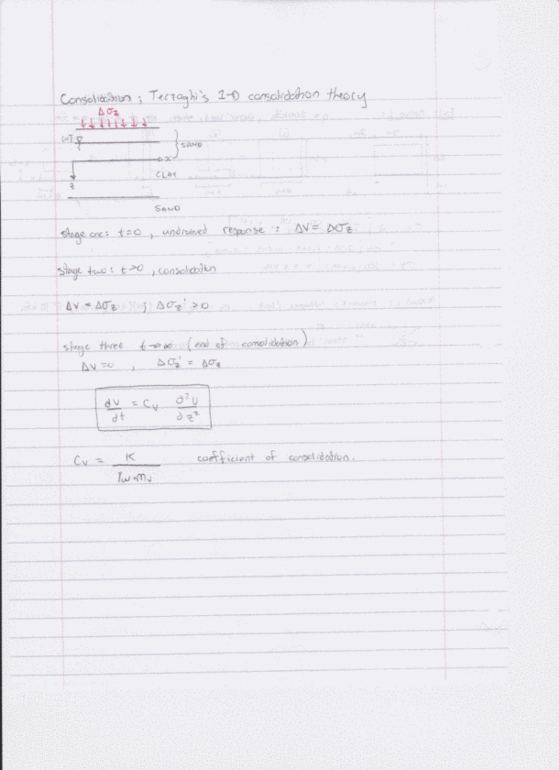 Consolidation ; Terzaghi's 1-D consolidation theory
Δσz
WT
SAND
x
CLAY
z
SAND
stage one: t=0 , undrained response : ΔV = Δσz
stage two: t>0 , consolidation
Δσz' >0
stage three t→∞ (end of consolidation)
ΔV=0 , Δσz' = Δσz
dV/dt = Cv ∂²U/∂z²
Cv = K/γw.mv coefficient of consolidation.